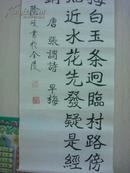 梅白玉条迥臨村路傍
近水花先發疑是經
唐 張謂詩 早梅
書於金陵